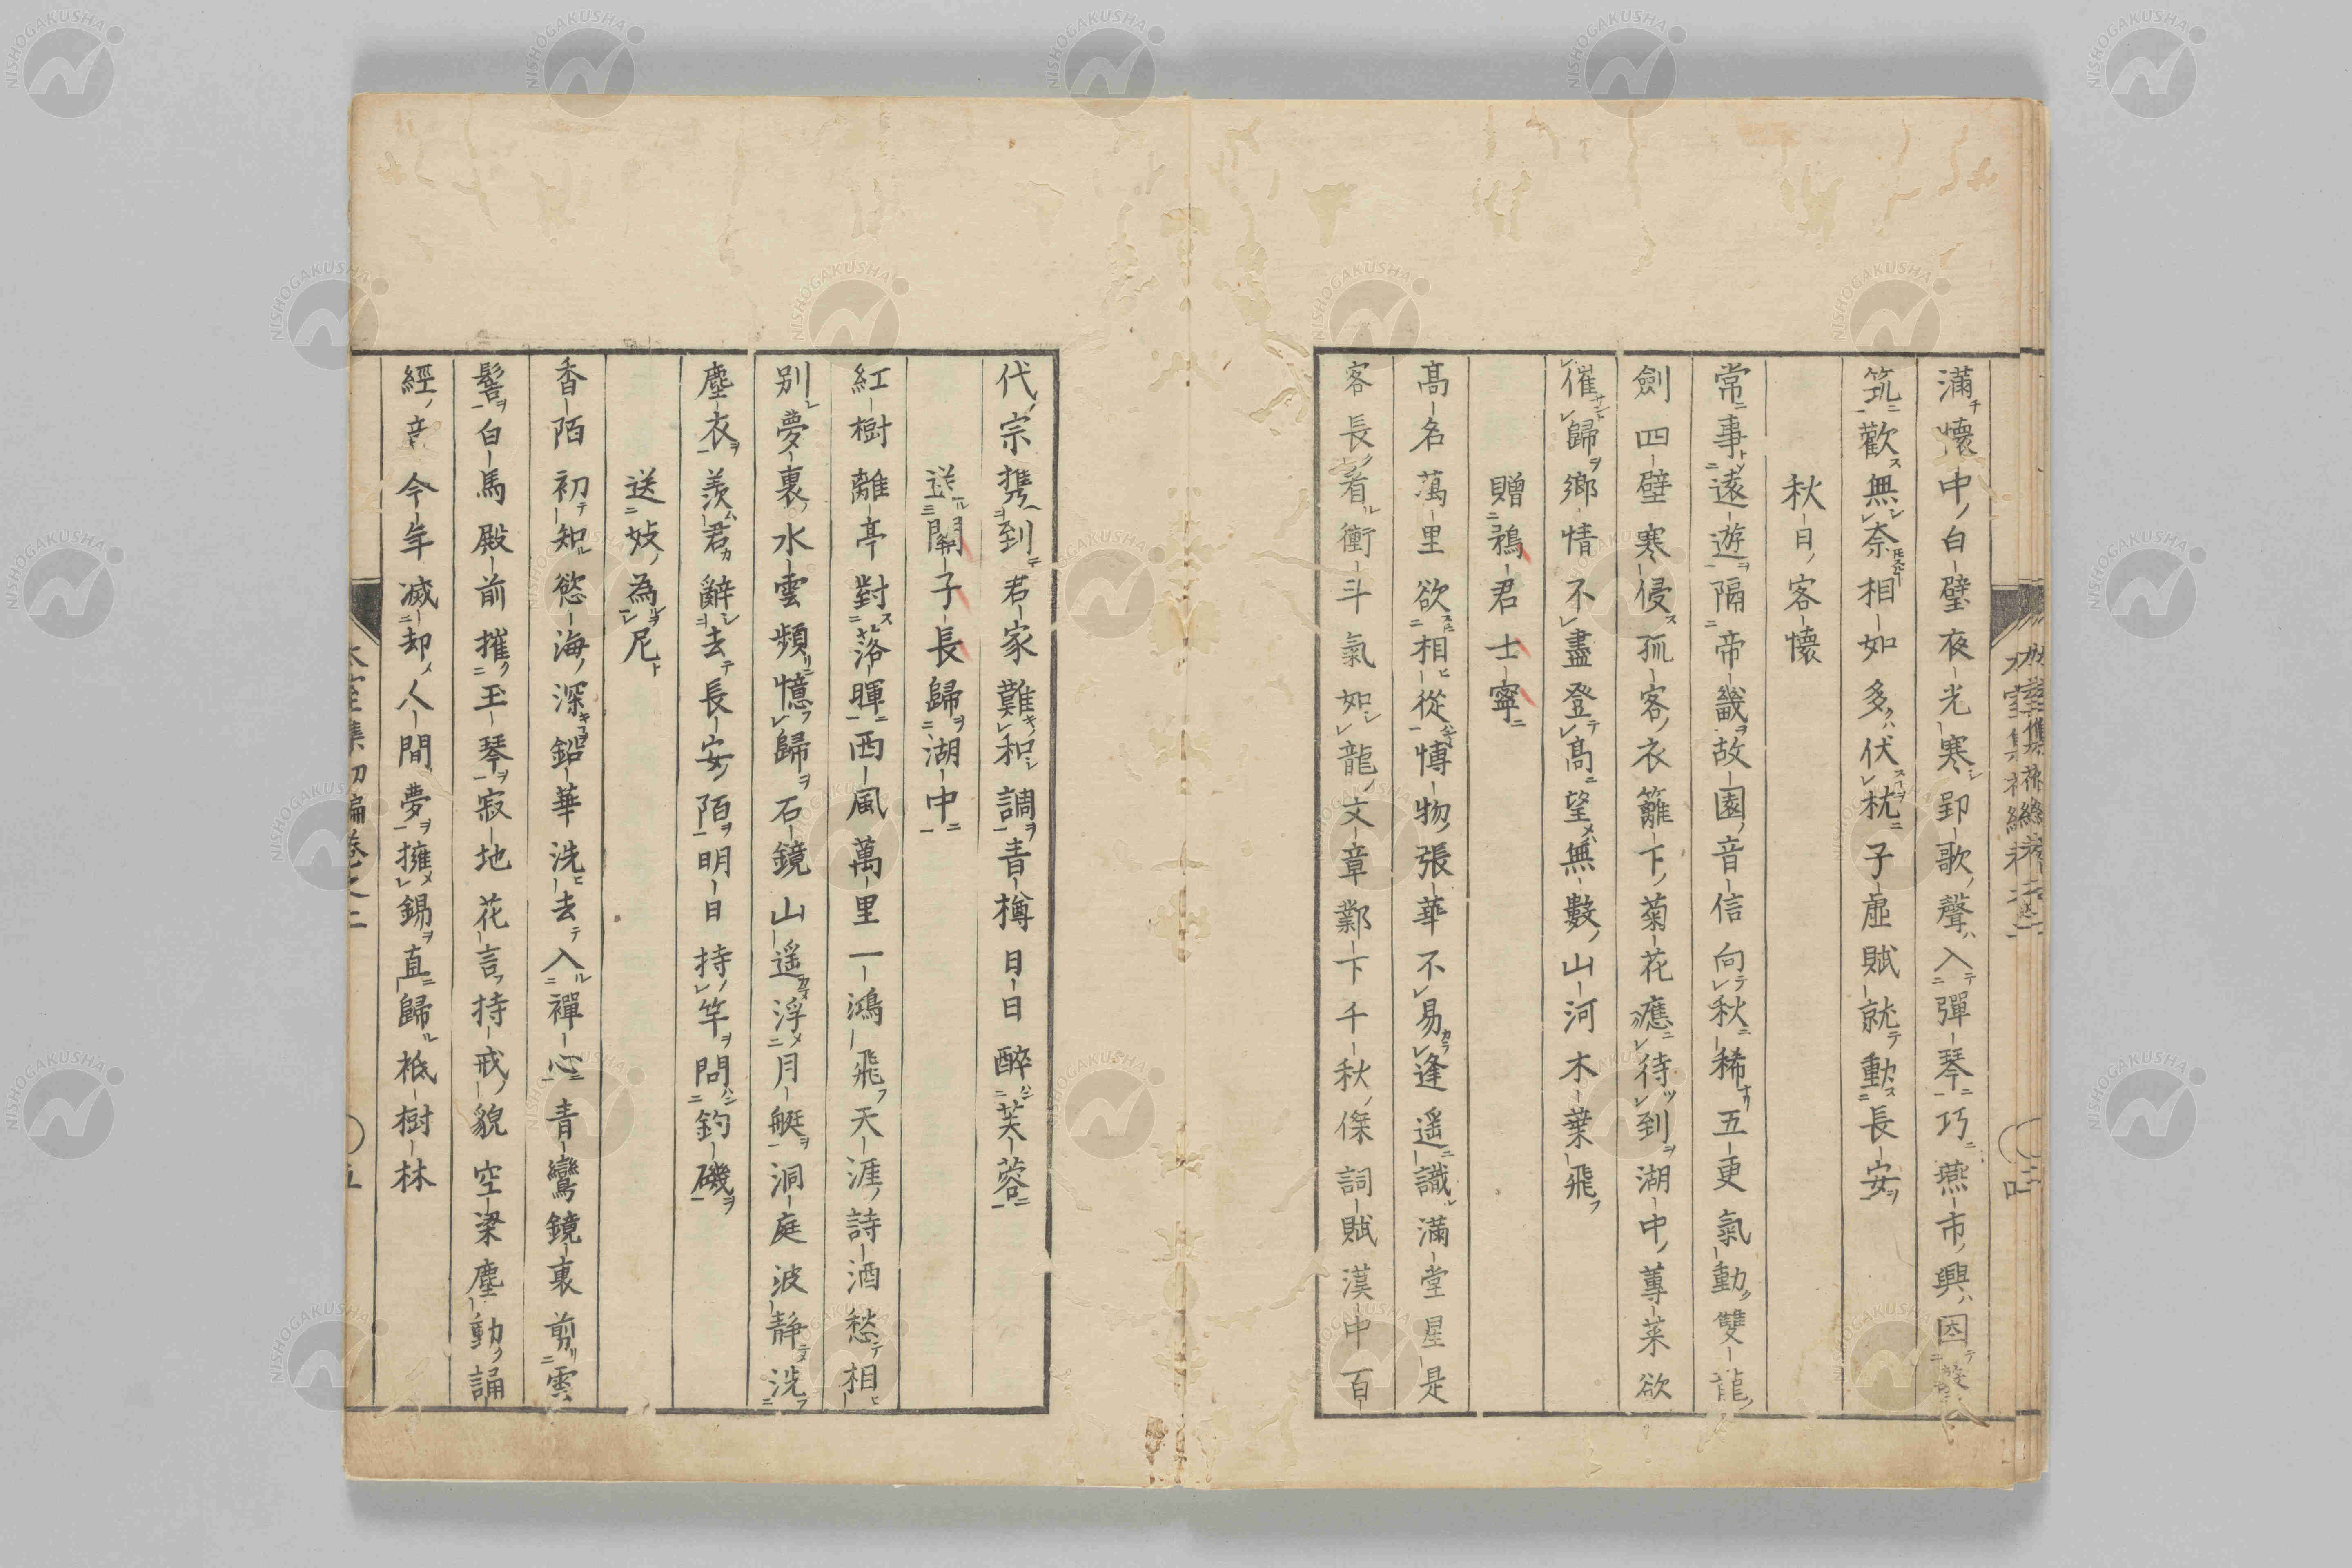 滿懷中白璧夜光寒郢歌聲入彈琴巧燕市興因擊
筑歡無奈相如多伏枕子虛賦就動長安
秋日客懷
常事遠遊隔帝畿故園音信向秋稀五更氣動雙龍
劍四壁寒侵孤客衣籬下菊花應待到湖中蓴菜欲
催歸鄉情不盡登高望無數山河木葉飛
贈鵜君士寧
高名萬里欲相從博物張華不易逢遥識滿堂星是
客長看衝斗氣如龍文章鄴下千秋傑詞賦漢中百
代宗携到君家難和調青樽日日醉芙蓉
送関子長歸湖中
紅樹離亭對落暉西風萬里一鴻飛天涯詩酒愁相
別夢裏水雲頻憶歸石鏡山遥浮月艇洞庭波靜洗
塵衣羨君辭去長安陌明日持竿問釣磯
送妓為尼
香陌初知慾海深鉛華洗去入禪心青鸞鏡裏剪雲
鬟白馬殿前摧玉琴寂地花言持戒貌空梁塵動誦
經音今年滅却人間夢擁錫直歸祗樹林
集初編卷之二
五